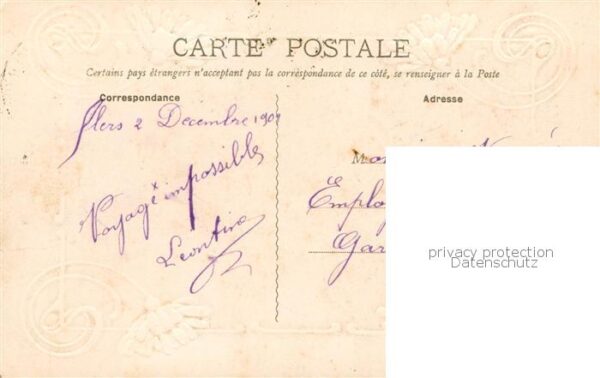 CARTE POSTALE
Certains pays étrangers n'acceptant pas la correspondance de ce côté, se renseigner à la Poste
Correspondance
Adresse
Flers 2 Decembre 190
Voyage impossible
Leontine
M
Emplo
Gar
privacy protection
Datenschutz